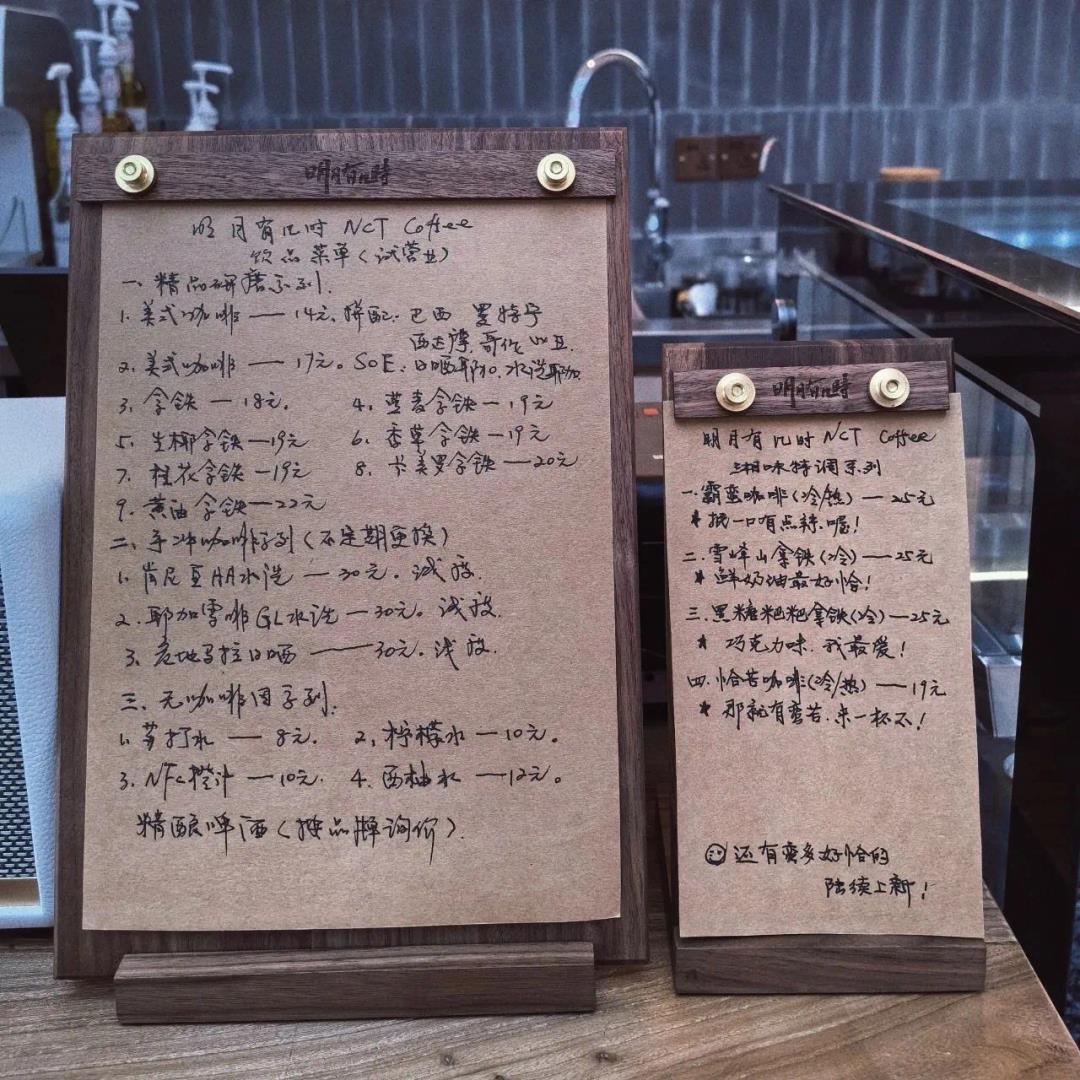 明月有几時
明月有几时 NCT Coffee
饮品菜单(试营业)
一、精品研磨系列.
1. 美式咖啡 — 14元. 拼配: 巴西 曼特宁
西达摩. 哥伦
2. 美式咖啡 — 17元。SOE: 日晒耶加. 水洗耶加.
3. 拿铁 — 18元. 4. 燕麦拿铁 — 19元
5. 生椰拿铁 — 19元 6. 香草拿铁 — 19元
7. 桂花拿铁 — 19元 8. 卡美罗拿铁 — 20元
9. 黄油拿铁 — 22元
二、手冲咖啡系列(不定期更换)
1. 肯尼亚AA水洗 — 30元。浅
2. 耶加雪啡GL水洗 — 30元。浅
3. 日晒 — 30元. 浅
三、无咖啡因系列:
1. 苏打水 — 8元. 2. 柠檬水 — 10元。
3. NFC橙汁 — 10元. 4. 西柚水 — 12元。
精酿啤酒(按品牌询价).
明月有几時
明月有几时 NCT Coffee
湘味特调系列
一. 霸蛮咖啡(冷/热) — 25元
* 抿一口有点辣. 喔!
二. 雪峰山拿铁(冷) — 25元
* 鲜奶油最好恰!
三. 黑糖粑粑拿铁(冷) — 25元
* 巧克力味. 我最爱!
四. 恰苦咖啡(冷/热) — 19元
* 那就有蛮苦. 来一杯不!
还有蛮多好恰的
陆续上新!